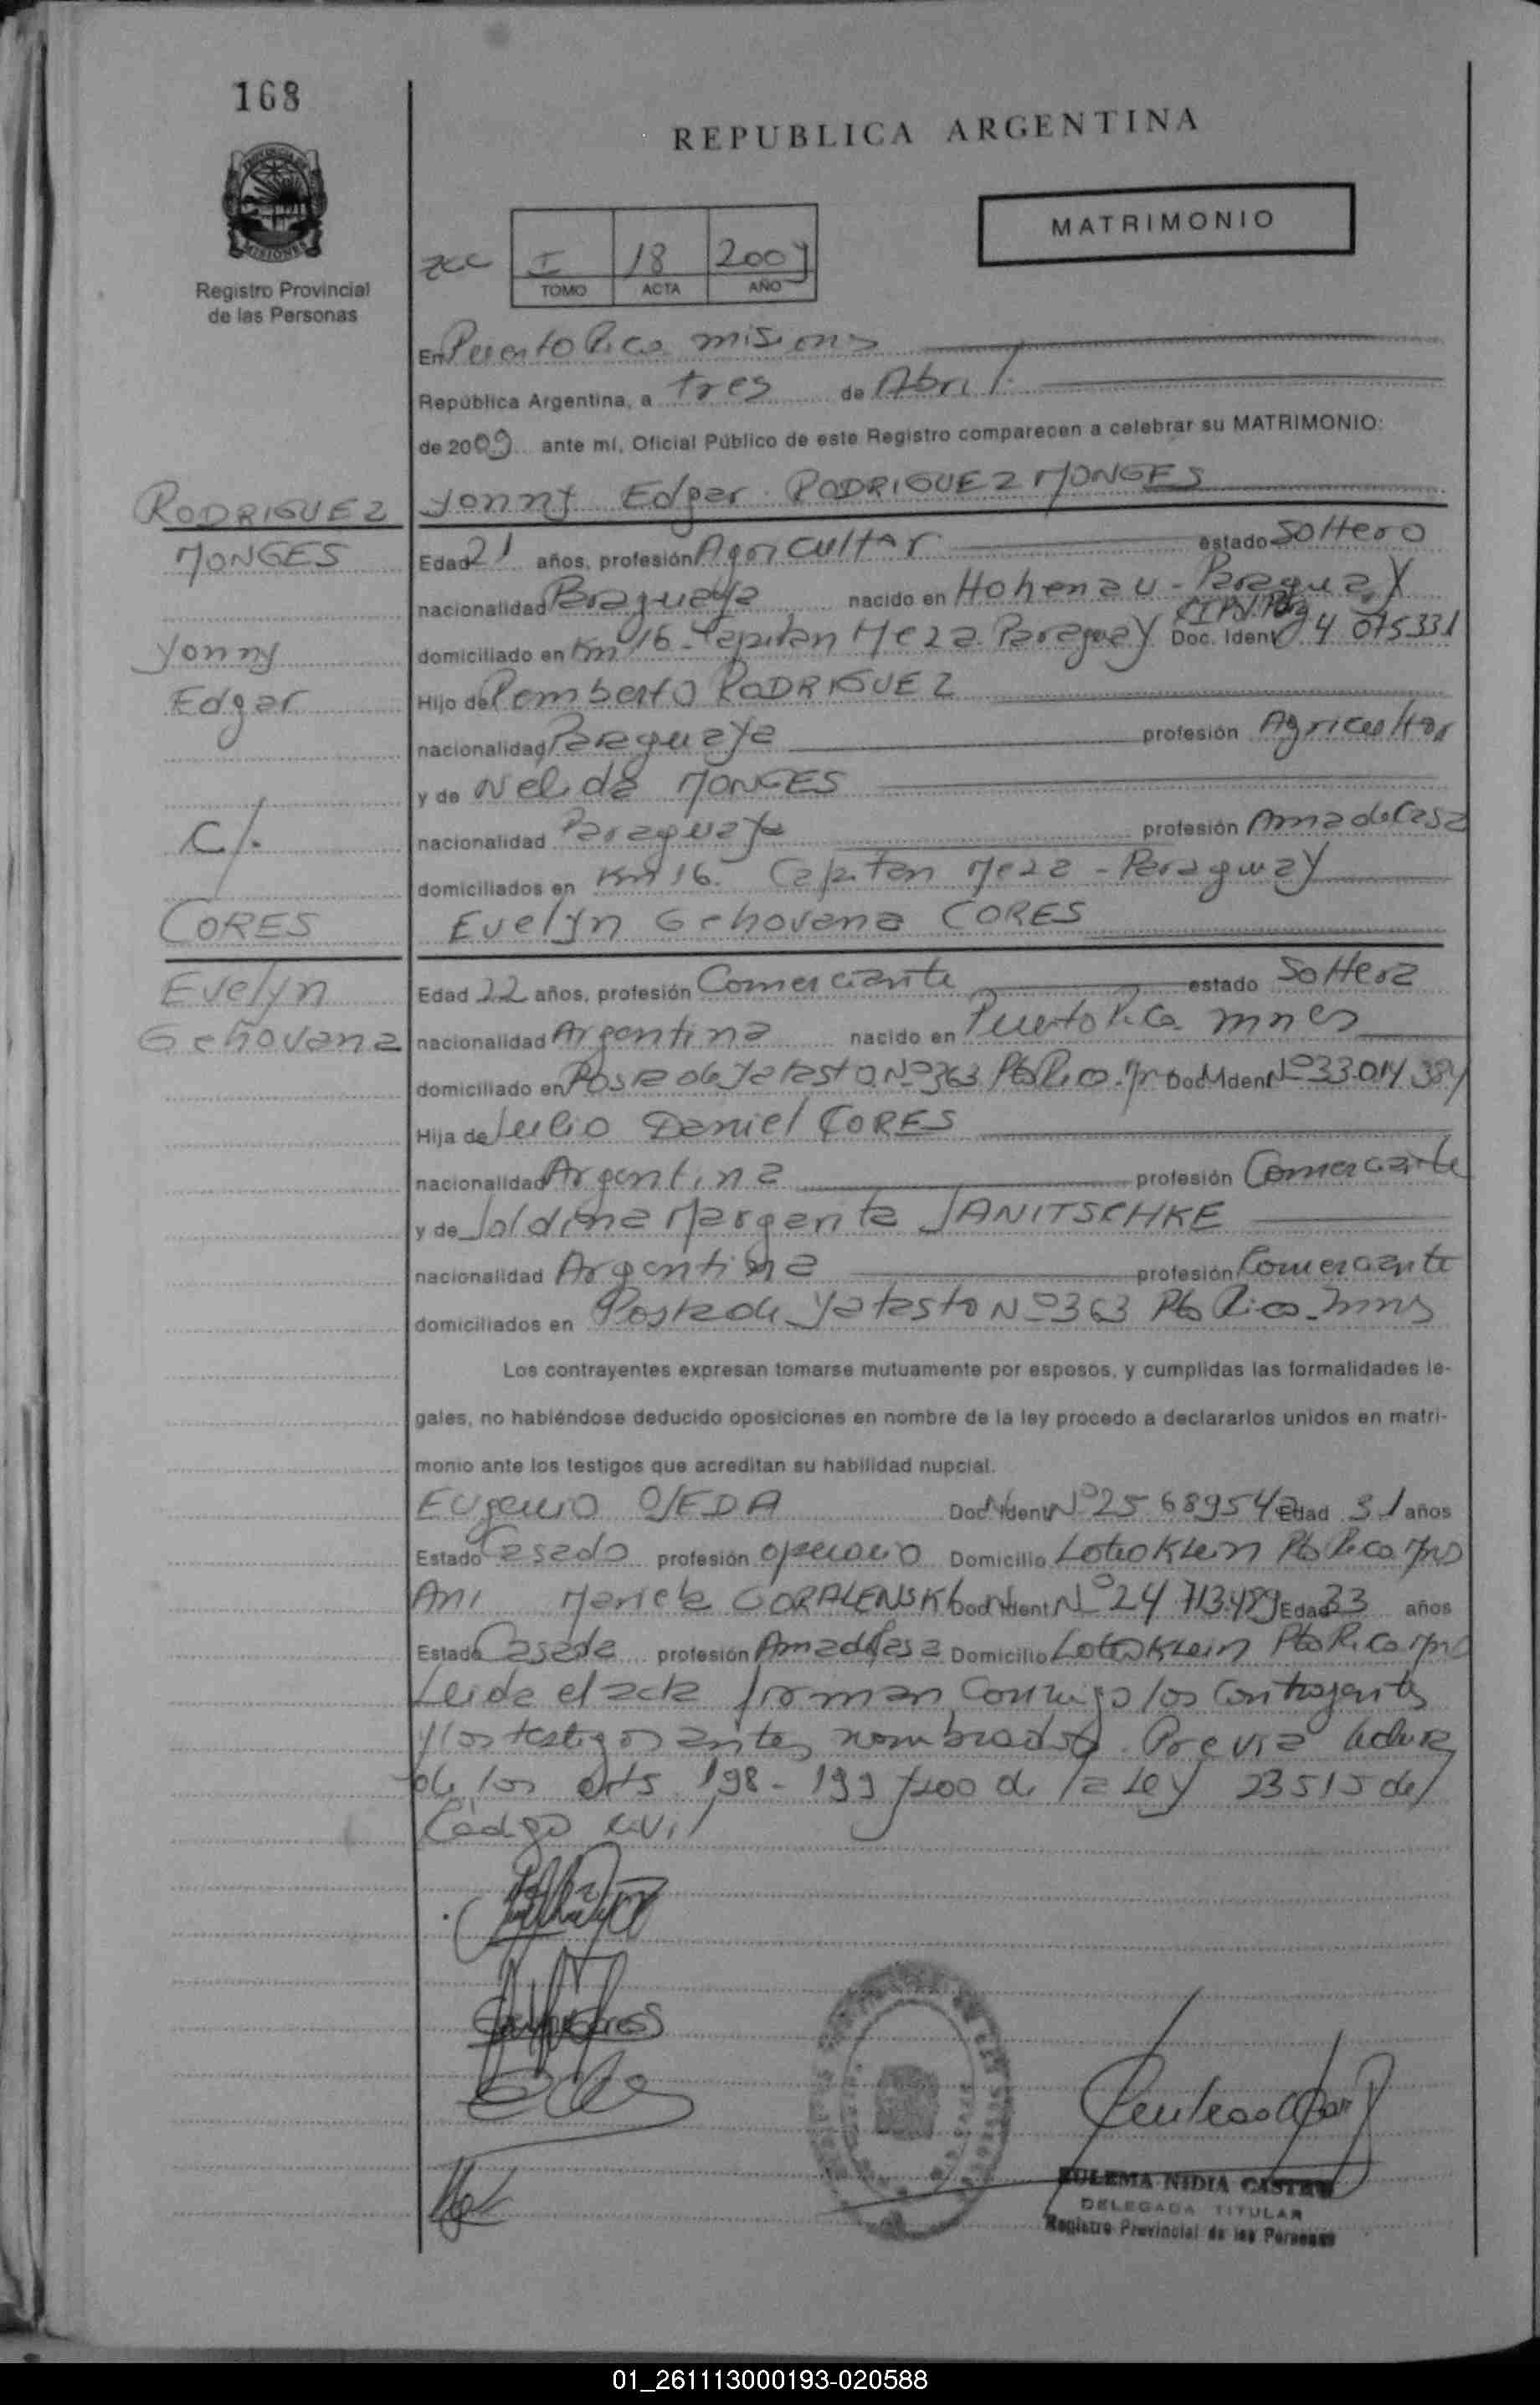 168
REPUBLICA ARGENTINA
MATRIMONIO
PROVINCIA DE
MISIONES
Registro Provincial
de las Personas
I 18 2009
TOMO ACTA AÑO
En Puerto Rico misiones
República Argentina, a tres de Abril
de 2009 ante mí, Oficial Público de este Registro comparecen a celebrar su MATRIMONIO:
RODRIGUEZ
MONGES
Yonny
Edgar
C/.
CORES
Evelyn
Gehovana
Yonny Edgar RODRIGUEZ MONGES
Edad 21 años, profesión Agricultor estado Soltero
nacionalidad Paraguaya nacido en Hohenau - Paraguay
domiciliado en Km 16 - Capitan Meza Paraguay Doc. Ident 4 075331
Hijo de Romberto RODRIGUEZ
nacionalidad Paraguaya profesión Agricultor
y de Nelida MONGES
nacionalidad Paraguaya profesión Ama de Casa
domiciliados en Km 16. Capitan Meza - Paraguay
Evelyn Gehovana CORES
Edad 22 años, profesión Comerciante estado Soltera
nacionalidad Argentina nacido en Puerto Rico mnes
domiciliado en Posta de Yatasto Nº 363 Pto Rico. Mns Doc. Ident Nº 33.014 384
Hija de Julio Daniel CORES
nacionalidad Argentina profesión Comerciante
y de Joldina Margarita JANITSCHKE
nacionalidad Argentina profesión Comerciante
domiciliados en Posta de Yatasto Nº 363 Pto Rico - mns
Los contrayentes expresan tomarse mutuamente por esposos, y cumplidas las formalidades le-
gales, no habiéndose deducido oposiciones en nombre de la ley procedo a declararlos unidos en matri-
monio ante los testigos que acreditan su habilidad nupcial.
Eugenio OJEDA Doc. Ident Nº 25 689542 Edad 31 años
Estado Casado profesión operario Domicilio Lote Klein Pto Rico Mns
Ani Mariela GORALENSKI Doc. Ident Nº 24 713.489 Edad 33 años
Estado Casada profesión Ama de Casa Domicilio Lote Klein Pto Rico Mns
Leida el acta firman conmigo los contrayentes
y los testigos antes nombrados. Previa lectura
de los arts 198 - 199 y 200 de la Ley 23515 del
Código civil
ZULEMA NIDIA CASTRO
DELEGADA TITULAR
Registro Provincial de las Personas
01_261113000193-020588